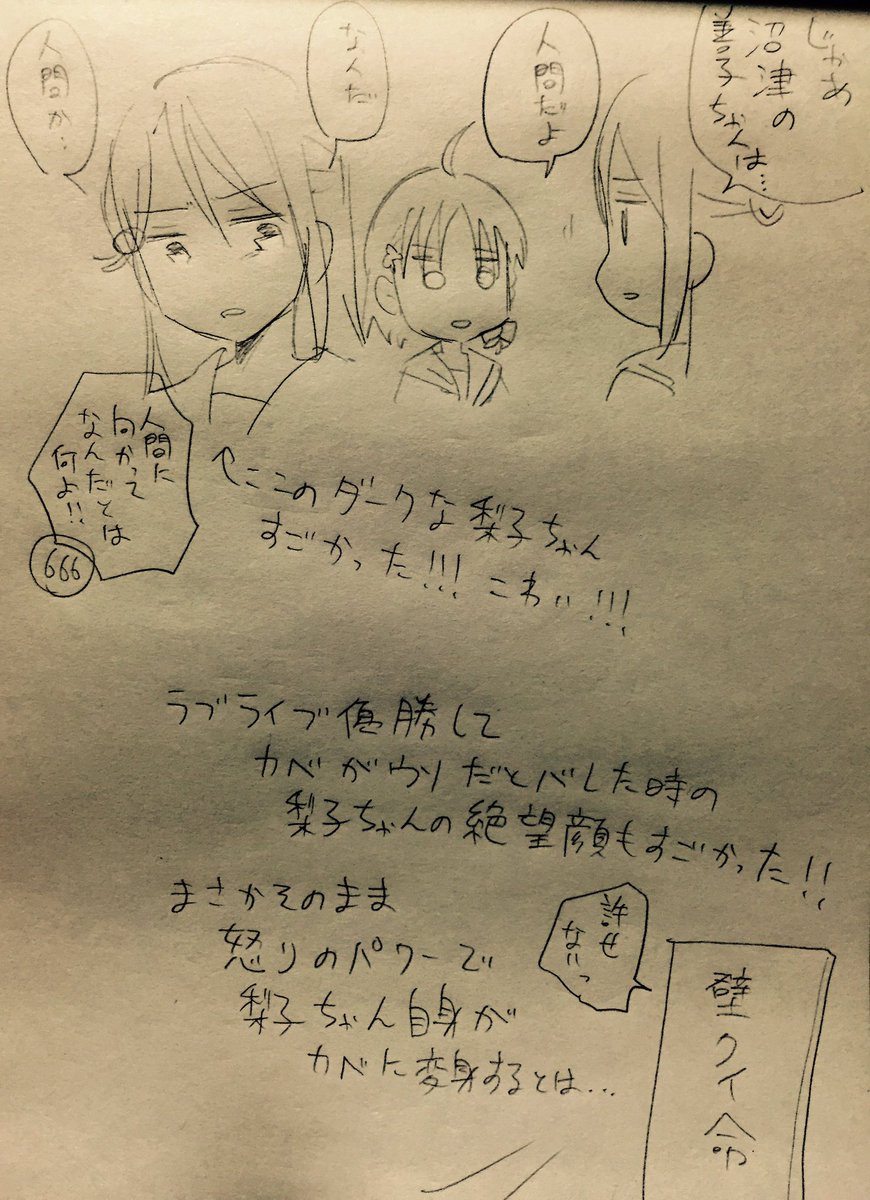 じゃあ
沼津の
善子ちゃんは…
人間だよ
なんだ
人間か…
人間に
向かって
なんだとは
何よ!!
666
←ここのダークな梨子ちゃん
すごかった!!! こわい!!!
ラブライブ優勝して
カベがウソだとバレた時の
梨子ちゃんの絶望顔もすごかった!!
まさかそのまま
怒りのパワーで
梨子ちゃん自身が
カベに変身するとは…
許せ
ないっ
壁クイ命